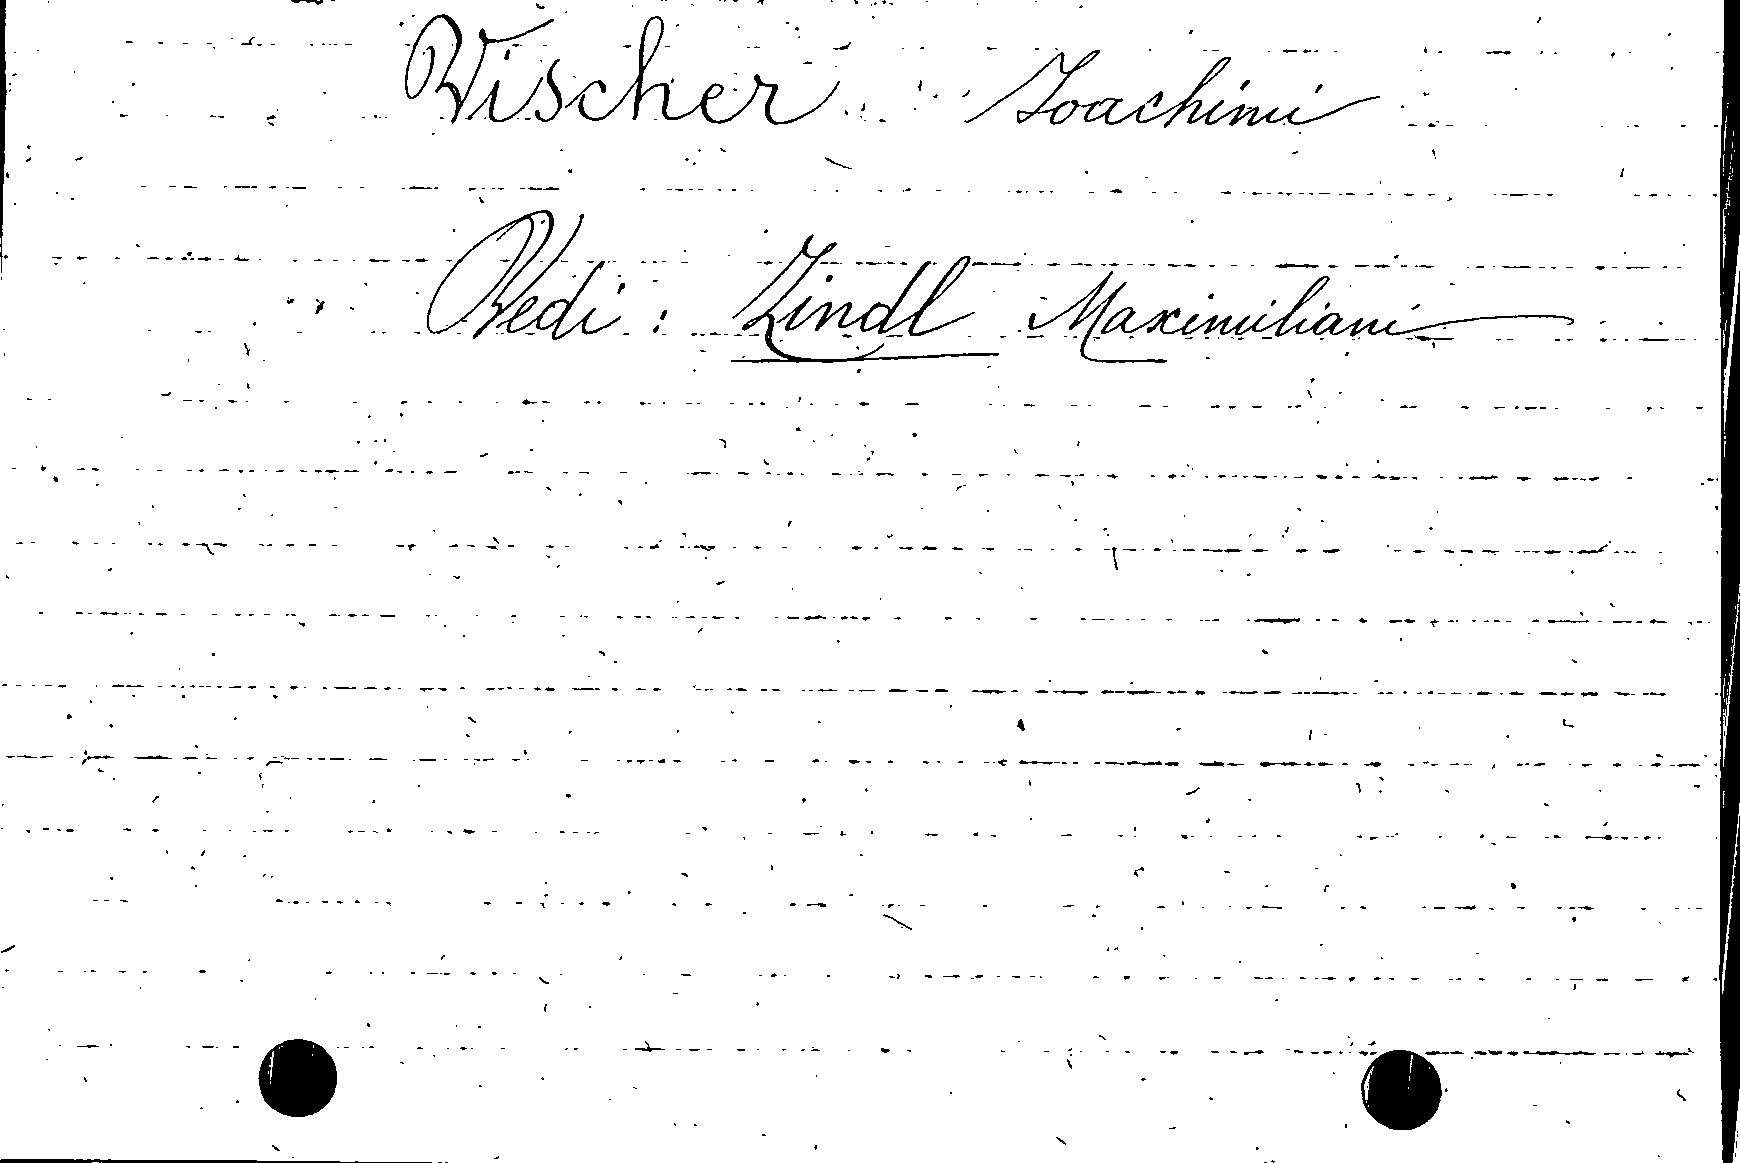 Vischer Joachimi
Vedi : Zindl Maximiliani